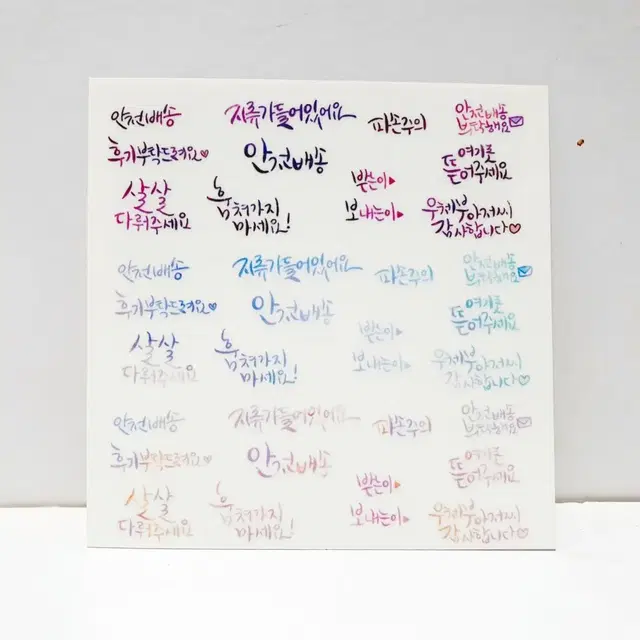 안전배송
지류가들어있어요
파손주의
안전배송
부탁해요
후기부탁드려요♡
안전배송
여기를
뜯어주세요
살살
다뤄주세요
훔쳐가지
마세요!
받는이♥
보내는이♥
우체부아저씨
감사합니다♡
안전배송
지류가들어있어요
파손주의
안전배송
부탁해요
후기부탁드려요♡
안전배송
여기를
뜯어주세요
살살
다뤄주세요
훔쳐가지
마세요!
받는이♥
보내는이♥
우체부아저씨
감사합니다♡
안전배송
지류가들어있어요
파손주의
안전배송
부탁해요
후기부탁드려요♡
안전배송
여기를
뜯어주세요
살살
다뤄주세요
훔쳐가지
마세요!
받는이♥
보내는이♥
우체부아저씨
감사합니다♡